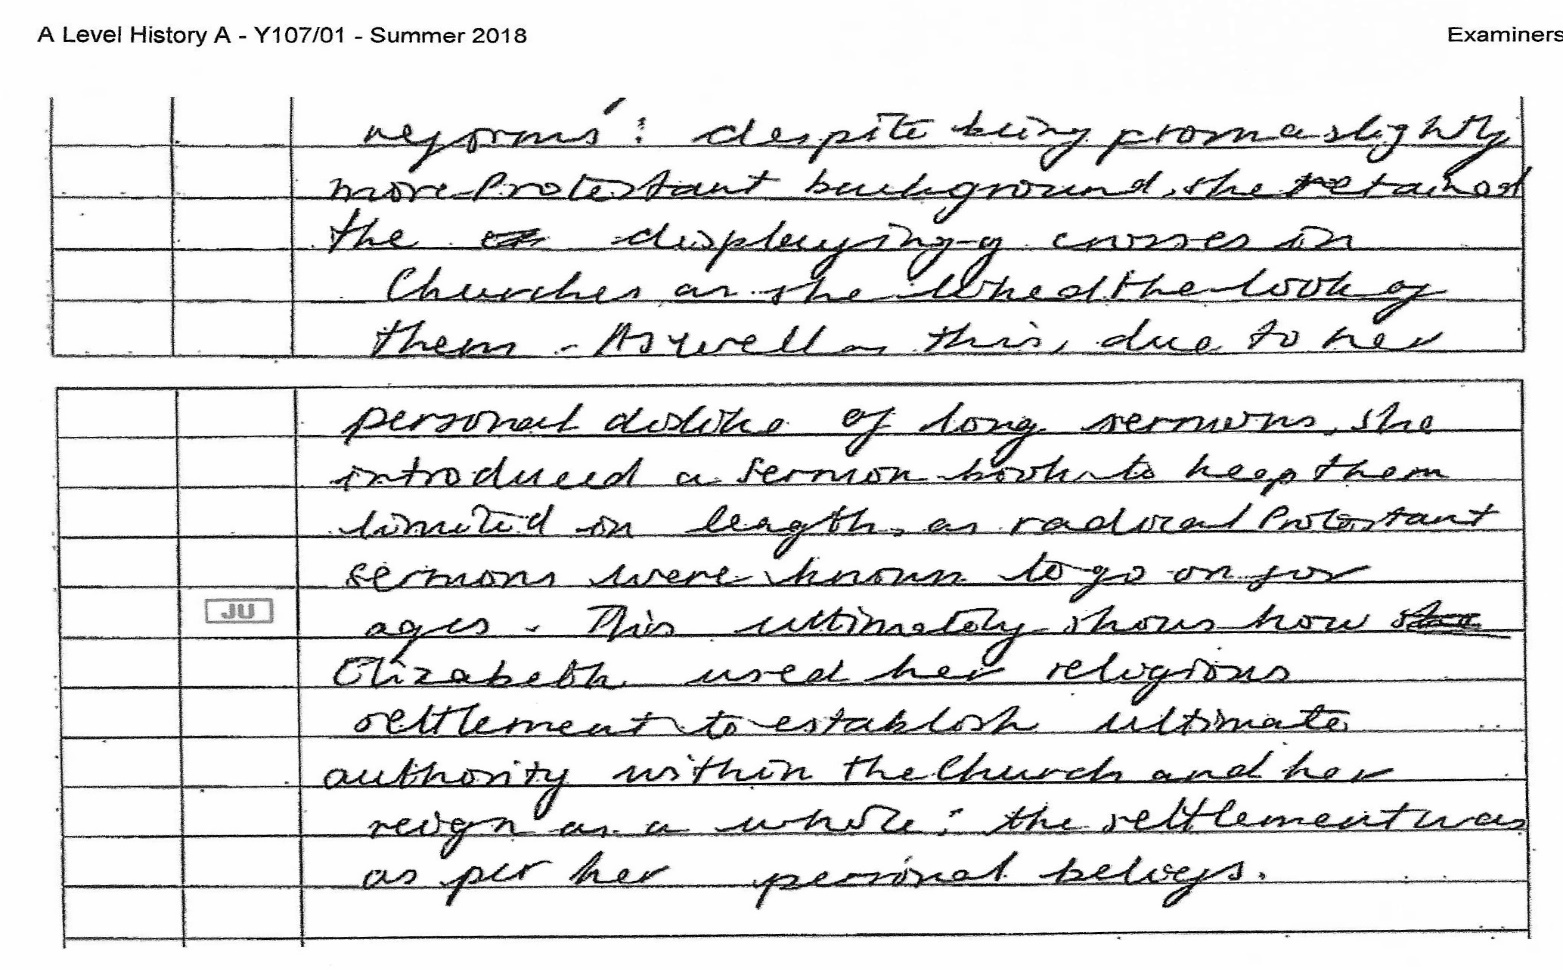 A Level History A - Y107/01 - Summer 2018
Examiners
reforms': despite being from a slightly
more Protestant background, she retained
the displaying of crosses in
Churches as she liked the look of
them. As well as this, due to her
personal dislike of long sermons, she
introduced a sermon book to keep them
limited in length, as radical Protestant
sermons were known to go on for
JU
ages. This ultimately shows how she
Elizabeth used her religious
settlement to establish ultimate
authority within the Church and her
reign as a whole: the settlement was
as per her personal beliefs.